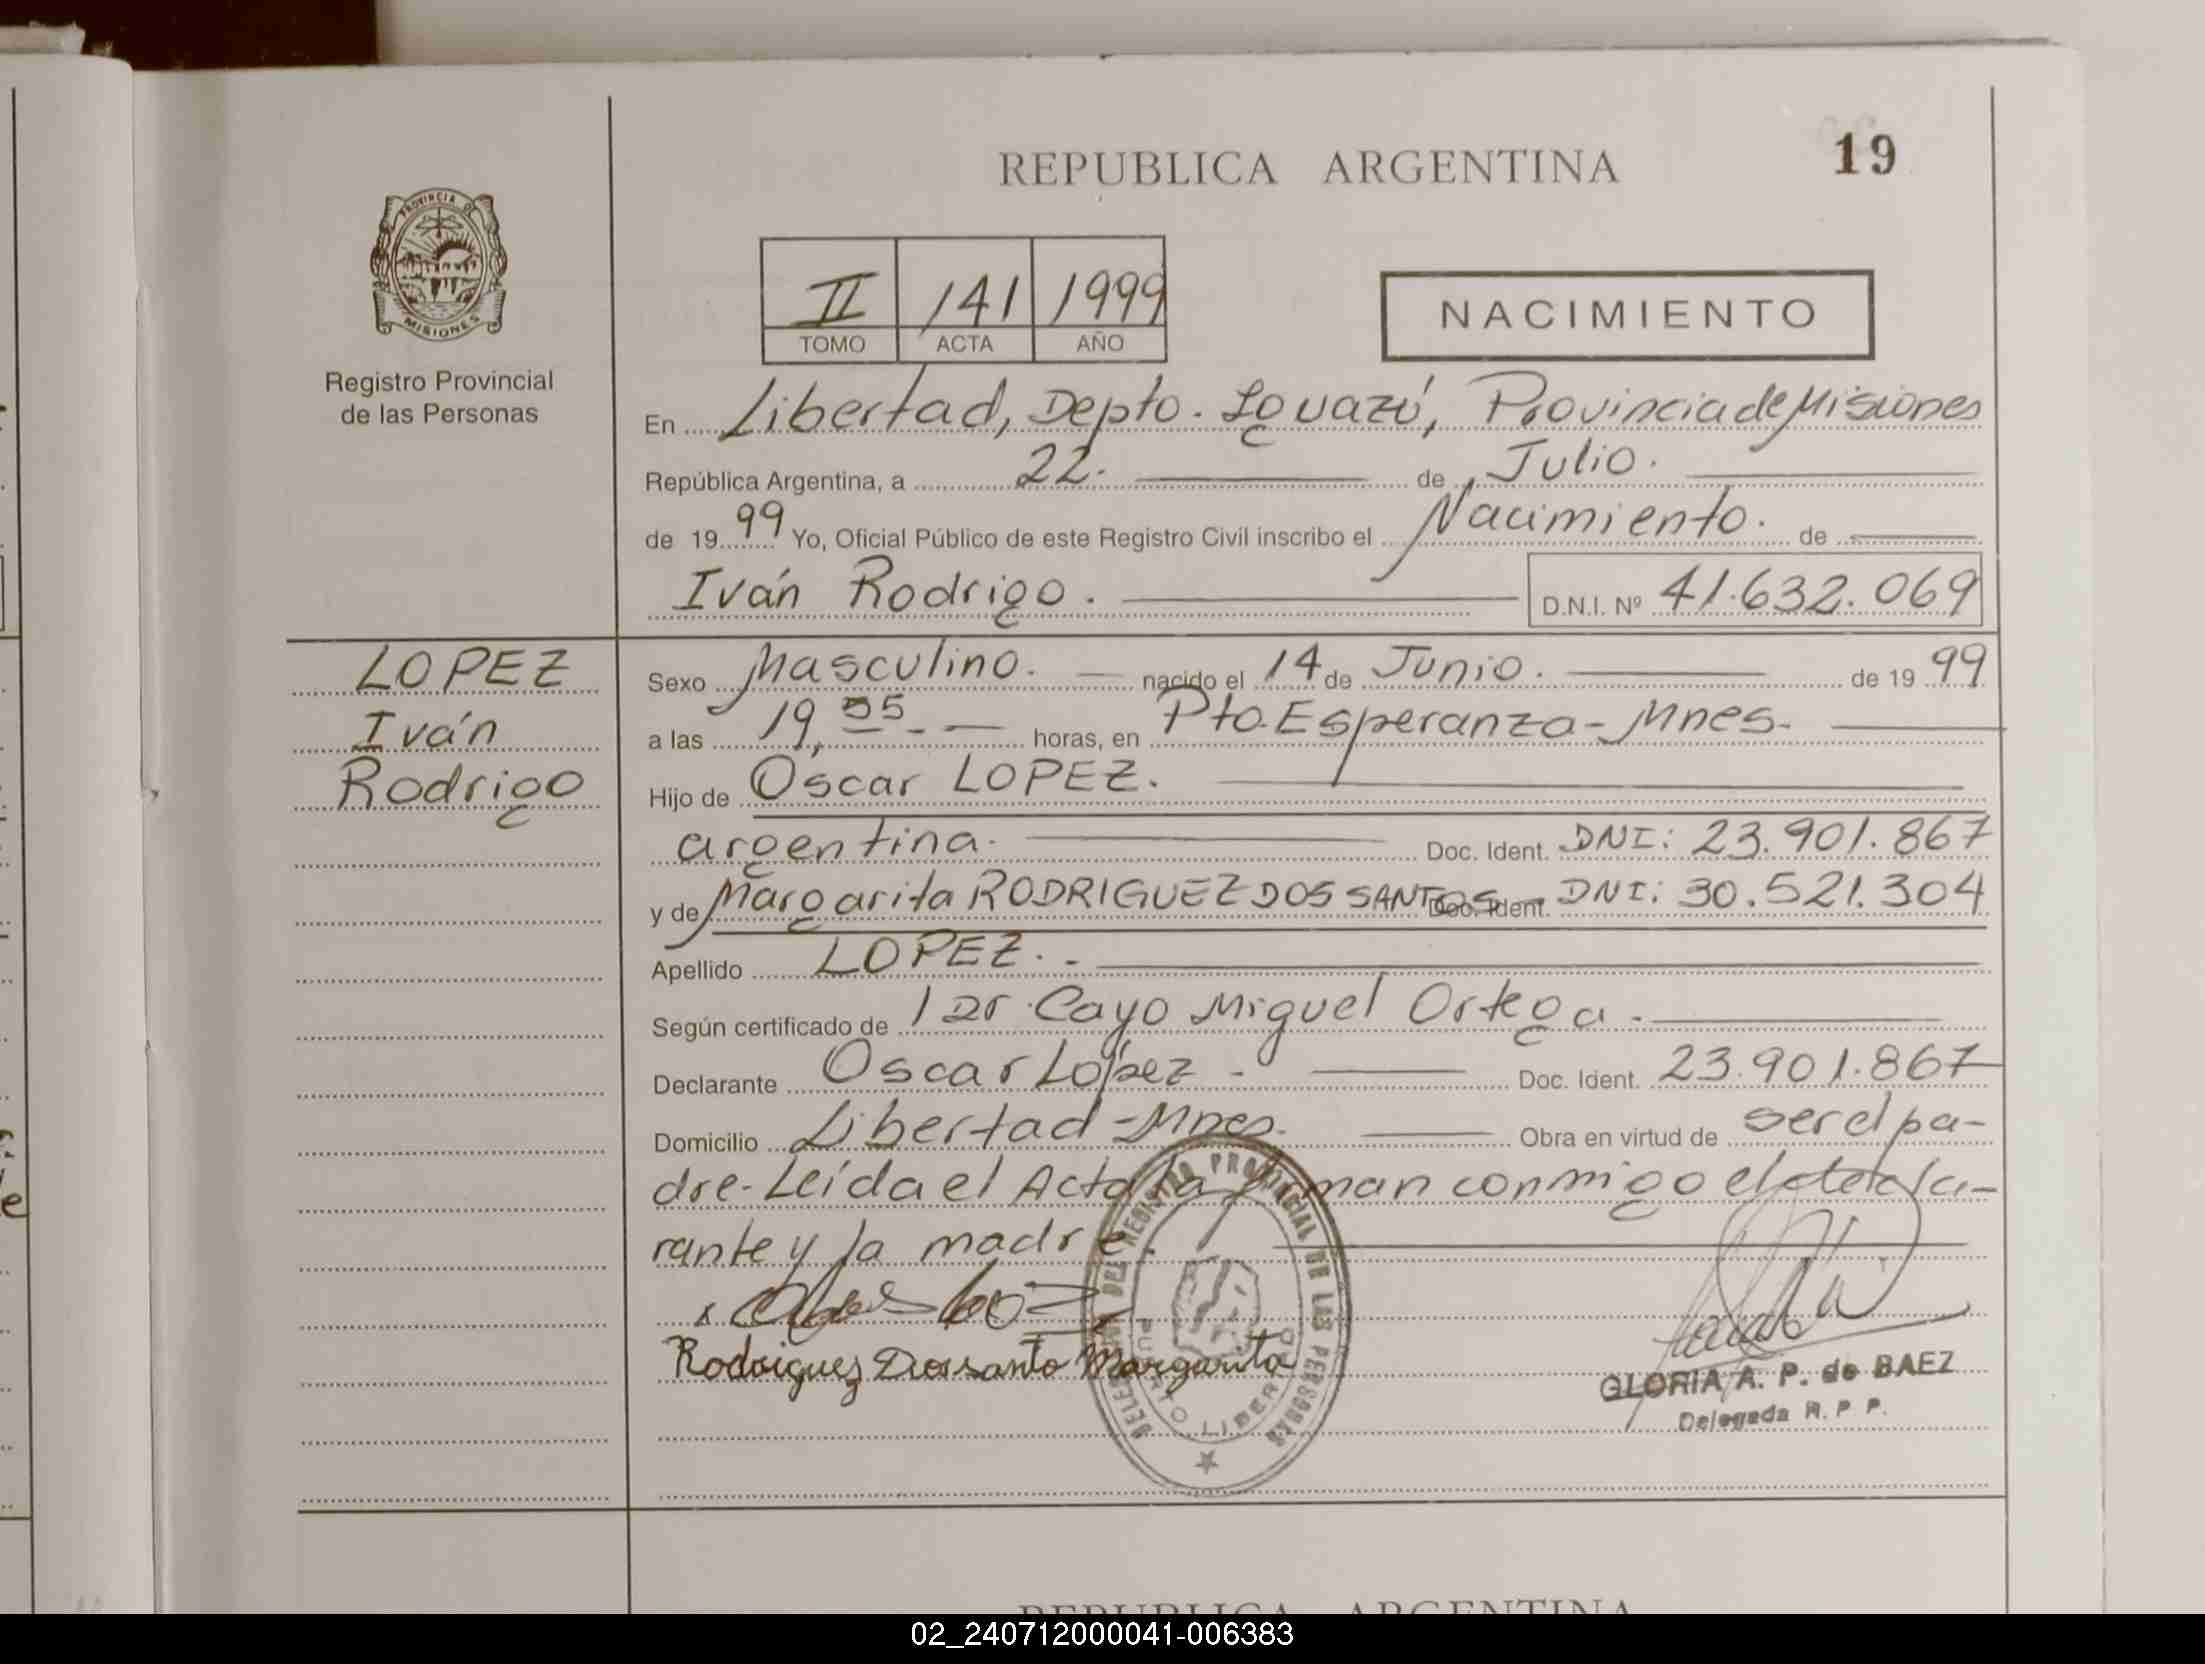 REPUBLICA ARGENTINA
19
PROVINCIA DE
MISIONES
Registro Provincial
de las Personas
II 141 1999
TOMO ACTA AÑO
NACIMIENTO
En Libertad, Depto. Iguazú, Provincia de Misiones
República Argentina, a 22. de Julio.
de 1999 Yo, Oficial Público de este Registro Civil inscribo el Nacimiento. de
Iván Rodrigo. D.N.I. Nº 41.632.069
LOPEZ
Iván
Rodrigo
Sexo Masculino. nacido el 14 de Junio. de 1999
a las 19, horas, en Pto. Esperanza - Mnes.
Hijo de Oscar LOPEZ.
argentina. Doc. Ident. DNI: 23.901.867
y de Margarita RODRIGUEZ DOS SANTOS - Doc. Ident. DNI: 30.521.304
Apellido LOPEZ. -
Según certificado de Dr. Cayo Miguel Ortega.
Declarante Oscar López - Doc. Ident. 23.901.867
Domicilio Libertad - Mnes. Obra en virtud de ser el pa-
dre - Leída el Acta la firman conmigo el decla-
rante y la madre.
Rodriguez Dossanto Margarita
REGISTRO PROVINCIAL DE LAS PERSONAS
PUERTO LIBERTAD
GLORIA A. P. de BAEZ
Delegada R. P. P.
REPUBLICA ARGENTINA
02_240712000041-006383